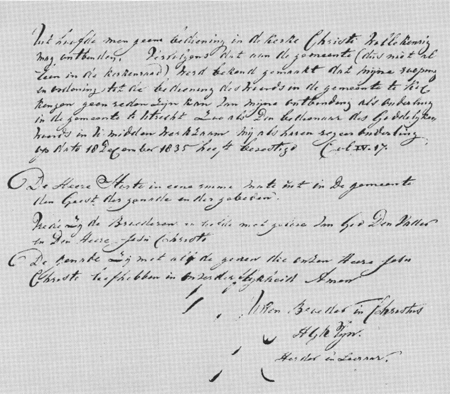 men geene bediening in de kerke Christi willekeurig
mag ontbinden, Vervolgens dat aan de gemeente (dus niet al
leen in de kerkenraad) werd bekend gemaakt dat mijne roeping
tot die bediening des Woords in de gemeente te
geen reden zijn kan van mijne ontbinding als ouderling
in de gemeente te Utrecht die als Den bedienaar des Goddelijken
Woords in U midden werkzaam bij als haren ouderling
op dato 18 December 1835 heeft bevestigd Col IV:17.
De Heere storte in eene ruime mate uit in De gemeente
den Geest der genade en der gebeden.
Vrede zij de Broederen en liefde met geloove Van God Den Vader
en Den Heere Jesu Christo
De genade zij met al de genen die onzen Heere Jesus
Christus liefhebben in onverderfelijkheid Amen
Uwen Broeder in Christus
Herder en Leeraar.